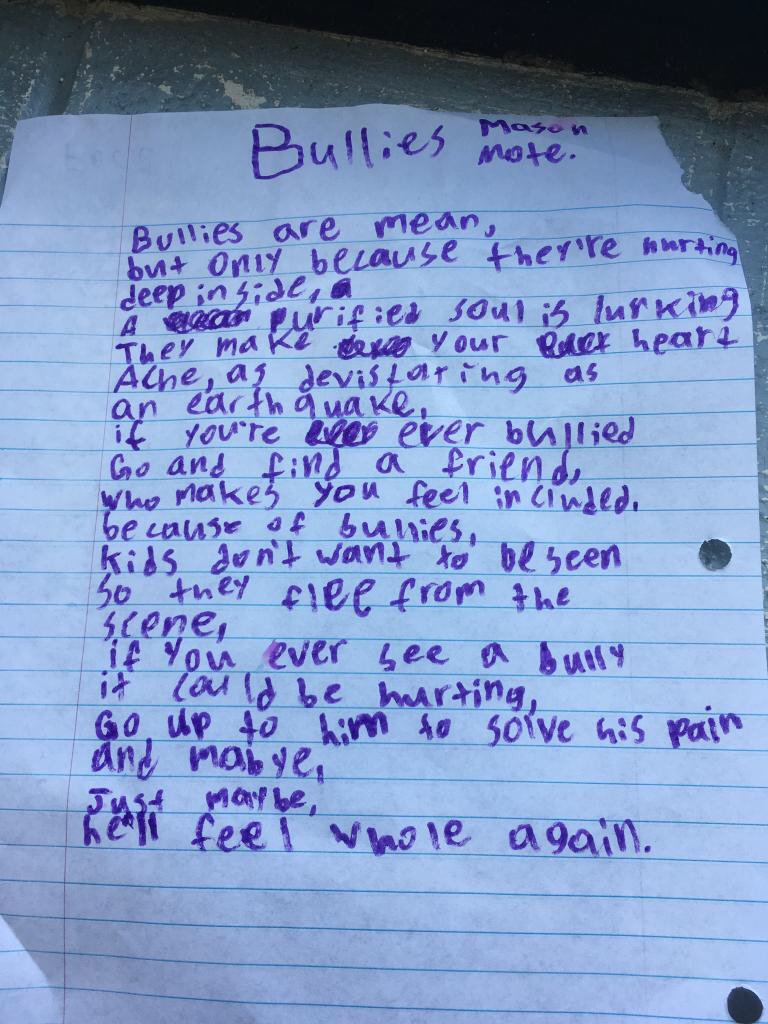 Bullies
Mason
Mote.
Bullies are mean,
but only because they're hurting
deep inside,
A purified soul is lurking
They make your heart
Ache, as devistaring as
an earthquake,
if you're ever bullied
Go and find a friend,
who makes you feel included.
because of bullies,
kids don't want to be seen
So they flee from the
scene,
if you ever see a bully
it could be hurting,
Go up to him to solve his pain
and mabye,
Just maybe,
he'll feel whole again.